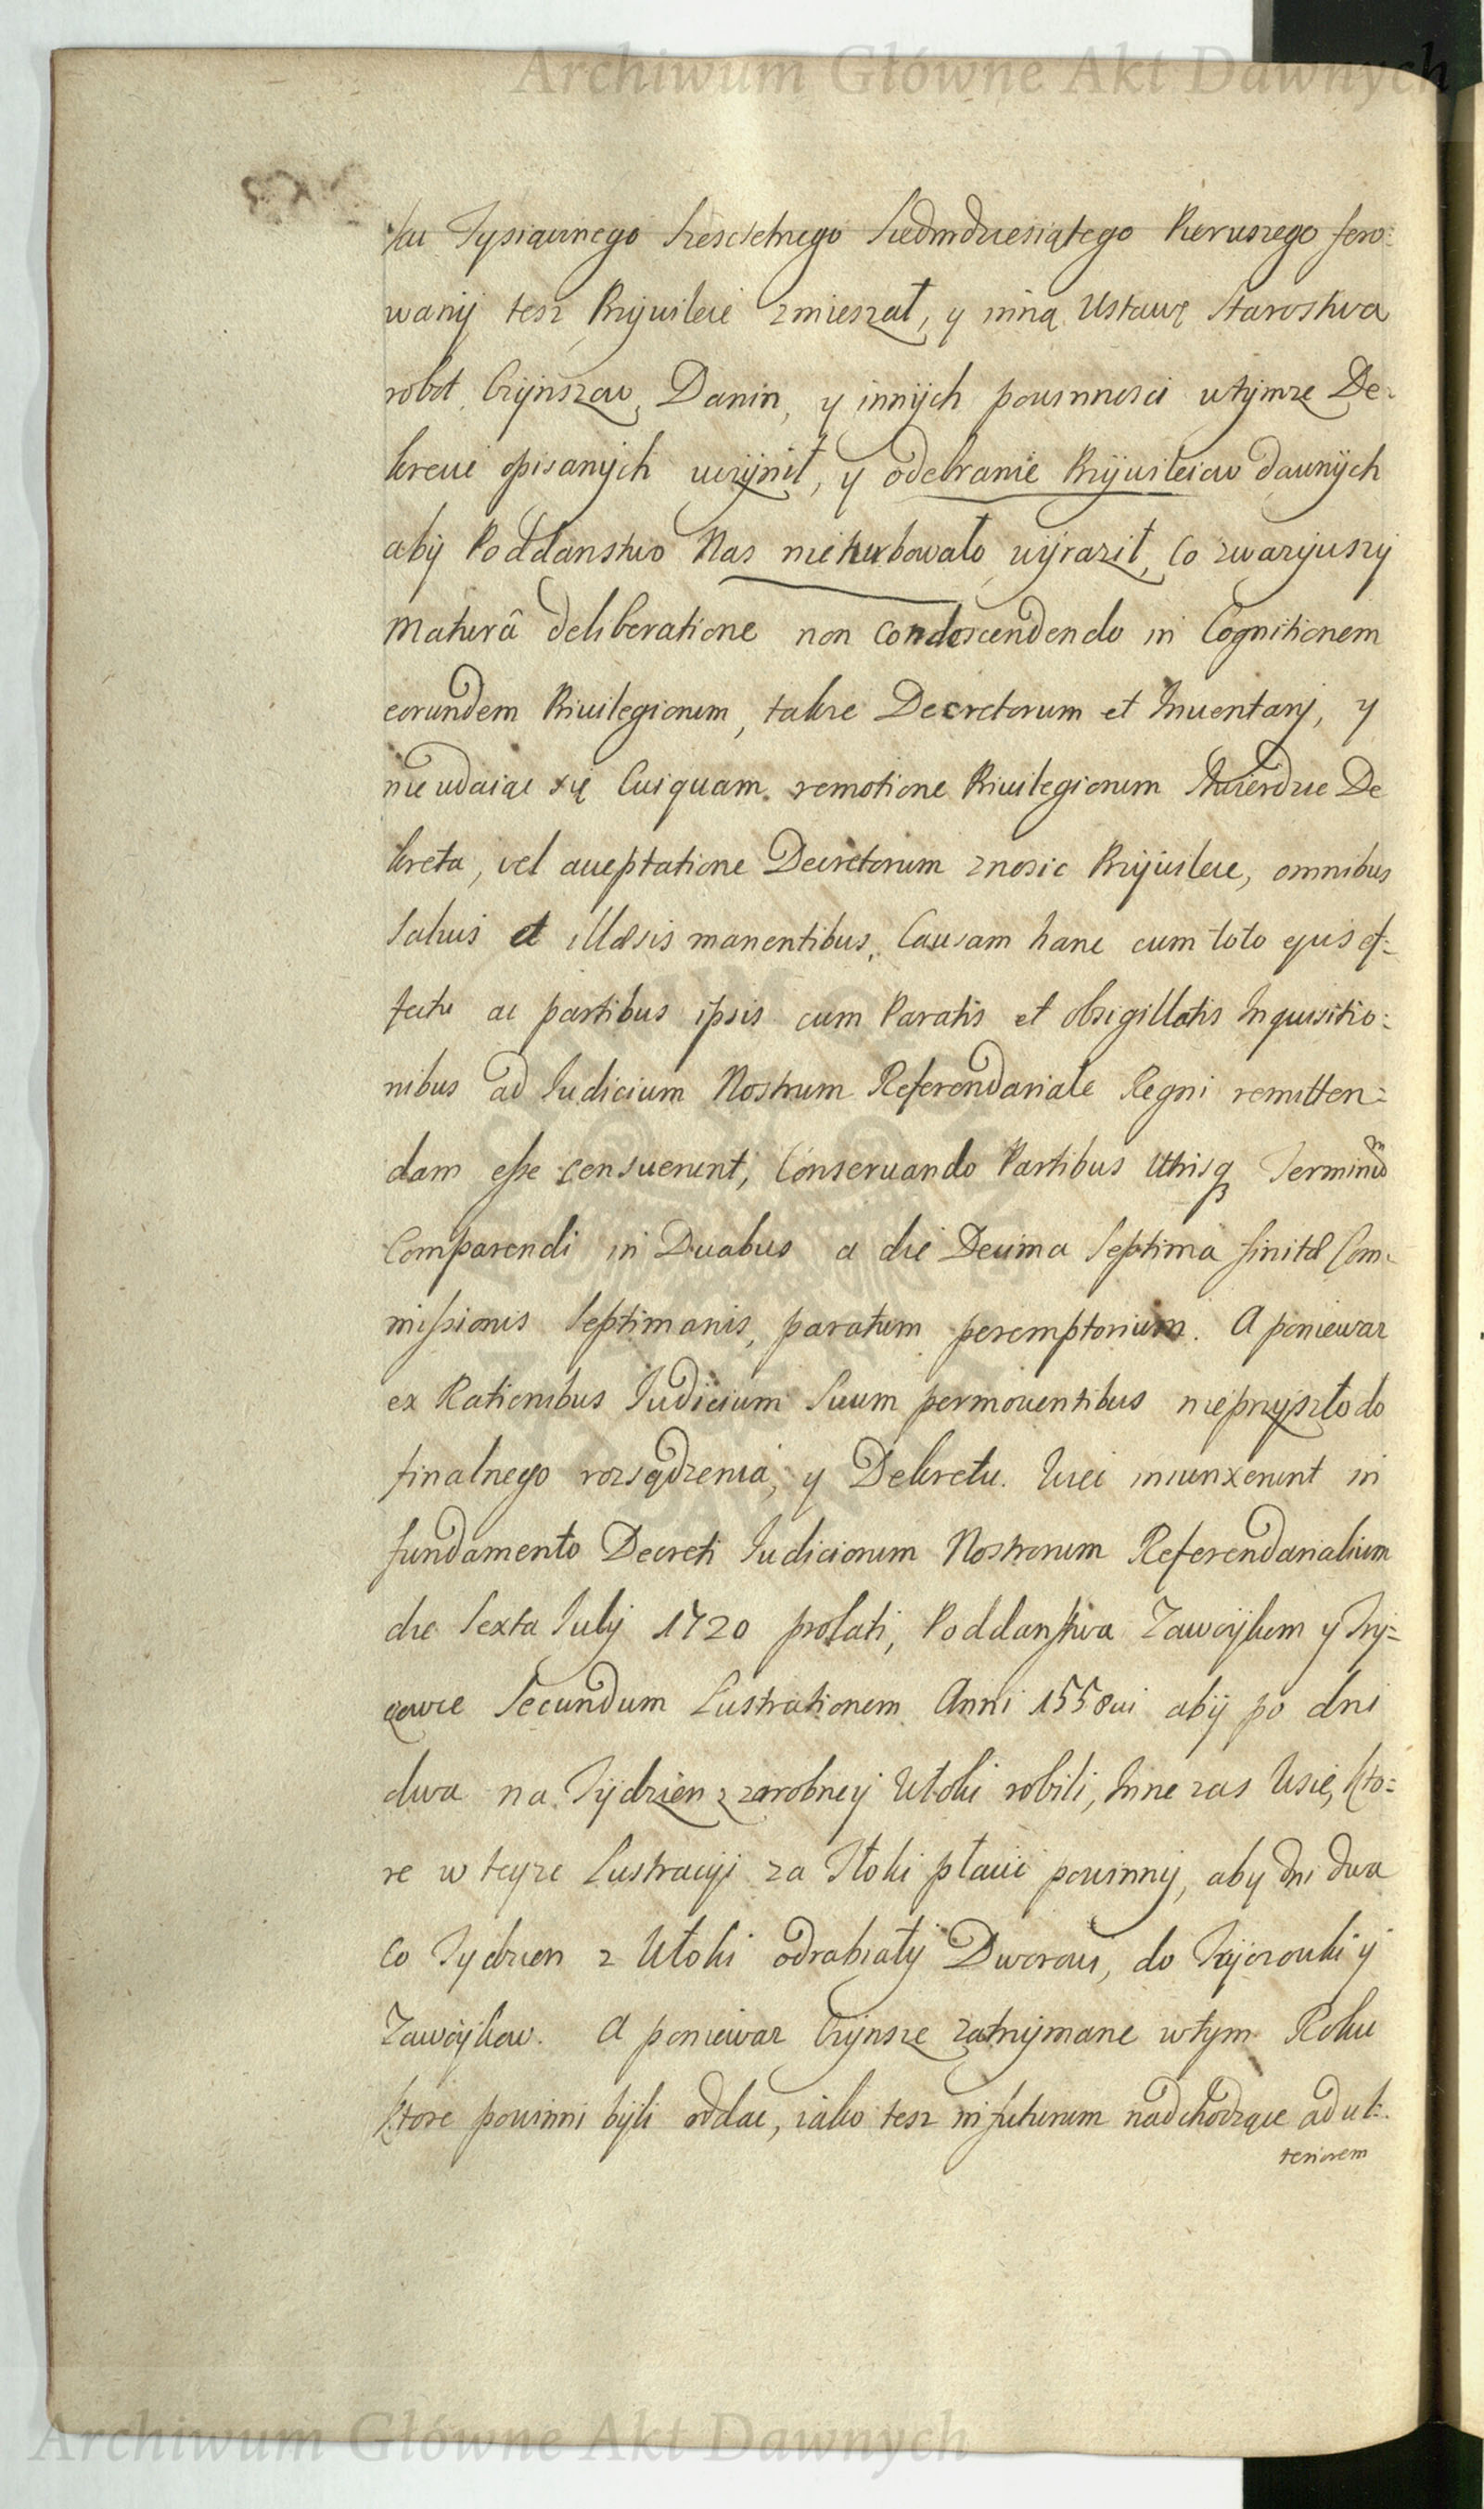 Archiwum Główne Akt Dawnych
ku Tysiącnego Szescsetnego Siedmdziesiątego Pierwszego fero:
wanÿ tesz Przÿwileie zmieszał, y inną Ustawę Starostwa
robot, Czÿnszow, Danin, y innÿch powinnosci wtÿmze De-
krecie opisanÿch uczÿnił, y odebranie Przÿwileiow dawnÿch
abÿ Poddanstwo Nas nieturbowało, wÿraził, Co zwazÿwszÿ
maturâ deliberatione non condescendendo in Cognitionem
eorundem Priuilegiorum, takze Decretorum et Inuentarÿ, y
nieudaiąc się Cuiquam remotione Priuilegiorum stwierdzic De
kreta, vel acceptatione Decretorum znosic Przÿwileie, omnibus
Saluis et illæsis manentibus, Causam hanc cum toto ejus ef-
fectu ac partibus ipsis cum Paratis et obsigillatis Inquisitio:
nibus ad Iudicium Nostrum Referendariale Regni remitten:
dam esse censuerunt, Conseruando Partibus Utrisq Terminũ
Comparendi in Duabus a die Decima Septima finitæ Com-
missionis Septimanis, paratum peremptorium. A poniewaz
ex Rationibus Iudicium Suum permouentibus nieprzÿszło do
finalnego rozsądzenia, y Dekretu. Wiec iniunxerunt in
fundamento Decreti Iudiciorum Nostrorum Referendarialium
die Sexta Julÿ 1720 prolati, Poddanstwa Zawoÿkom y Trÿ=
Secundum Lustrationem Anni 1558vi abÿ po dni
dwa na Tÿdzien z zarobneÿ Włoki robili, Inne zas Wsie, kto=
re w teyze Lustracÿi za Tłoki płacic powinnÿ, aby dni dwa
co Tydzien z Włoki odrabiałÿ Dworowi, do ÿ
Zawoÿkow. A poniewaz Czÿnsze zatrzÿmane wtym Roku
ktore powinni bÿli oddac, iako tesz in futurum nadchodzące ad ul:
teriorem
Archiwum Główne Akt Dawnych